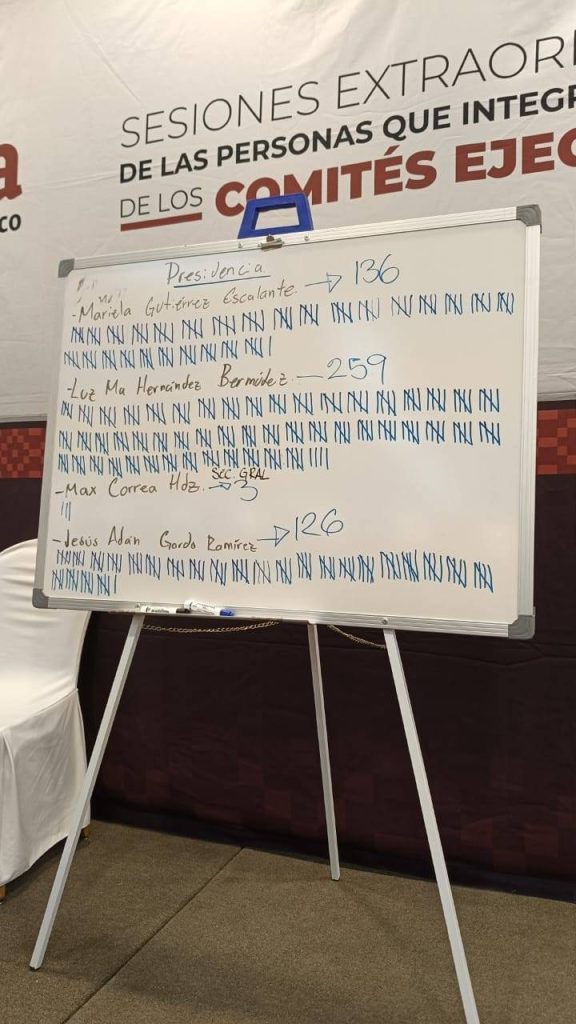 SESIONES EXTRAORI
DE LAS PERSONAS QUE INTEGR
DE LOS COMITÉS EJEC
a
CO
Presidencia
-Mariela Gutiérrez Escalante. → 136
-Luz Ma Hernández Bermúdez. — 259
SCC. GRAL
-Max Correa Hdz. → 3
-Jesús Adán Gordo Ramírez → 126